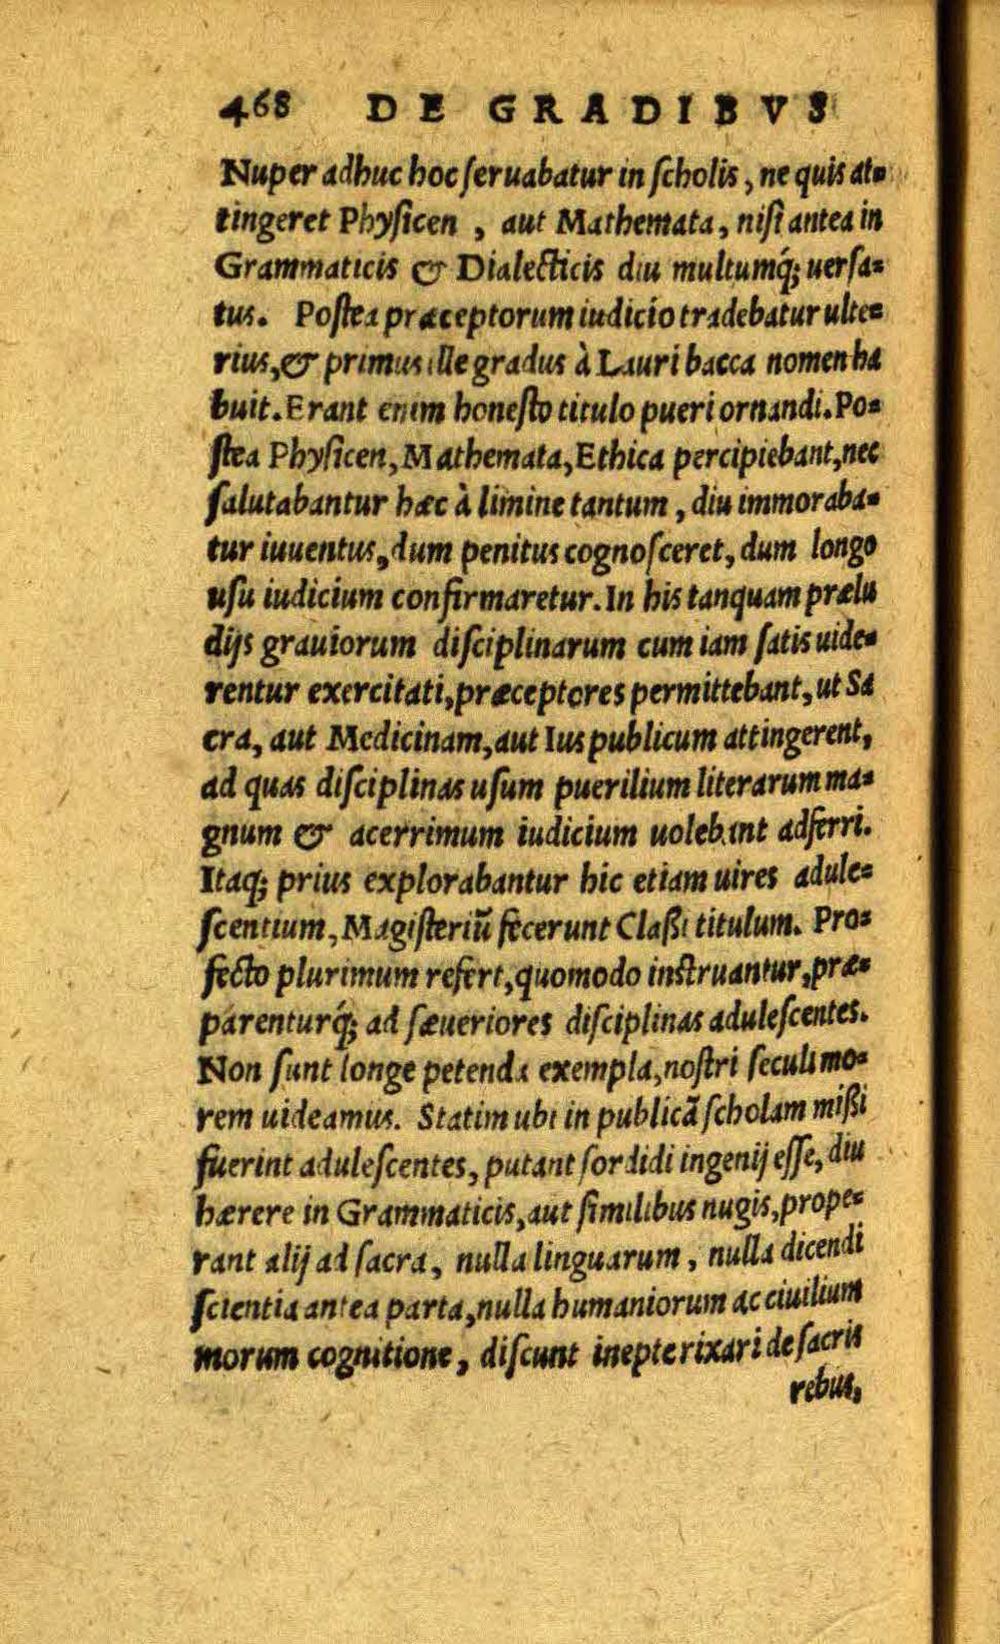 468 DE GRADIBVS
Nuper adhuc hoc ſeruabatur in ſcholis, ne quis at=
tingeret Phyſicen , aut Mathemata, niſi antea in
Grammaticis & Dialecticis diu multumq́; uerſa=
tus. Poſtea præceptorum iudicio tradebatur ulte=
rius, & primus ille gradus à Lauri bacca nomen ha
buit. Erant enim honeſto titulo pueri ornandi. Po=
ſtea Phyſicen, Mathemata, Ethica percipiebant, nec
ſalutabantur hæc à limine tantum , diu immoraba=
tur iuuentus, dum penitus cognoſceret, dum longo
uſu iudicium confirmaretur. In his tanquam prælu
dijs grauiorum diſciplinarum cum iam ſatis uide=
rentur exercitati, præceptores permittebant, ut Sa
cra, aut Medicinam, aut Ius publicum attingerent,
ad quas diſciplinas uſum puerilium literarum ma=
gnum & acerrimum iudicium uolebant adferri.
Itaq; prius explorabantur hic etiam uires adule=
ſcentium, Magiſteriū fecerunt Claßi titulum. Pro=
fecto plurimum refert, quomodo inſtruantur, præ=
parenturq́; ad ſæueriores diſciplinas aduleſcentes.
Non ſunt longe petenda exempla, noſtri ſeculi mo=
rem uideamus. Statim ubi in publicã ſcholam mißi
fuerint aduleſcentes, putant ſordidi ingenij eſſe, diu
hærere in Grammaticis, aut ſimilibus nugis, prope=
rant alij ad ſacra, nulla linguarum , nulla dicendi
ſcientia antea parta, nulla humaniorum ac ciuilium
morum cognitione, diſcunt inepte rixari de ſacris
rebus,